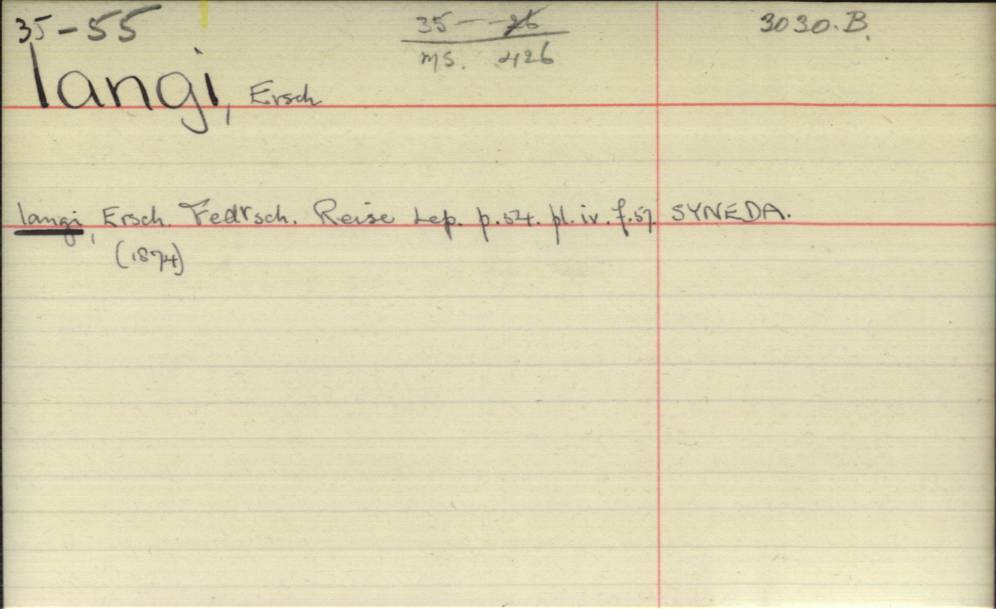 35-55 35--26 3030.B.
ms. 426
langi, Ersch
langi, Ersch. Fedtsch. Reise Lep. p.54. pl.iv. f.57 SYNEDA.
(1874)